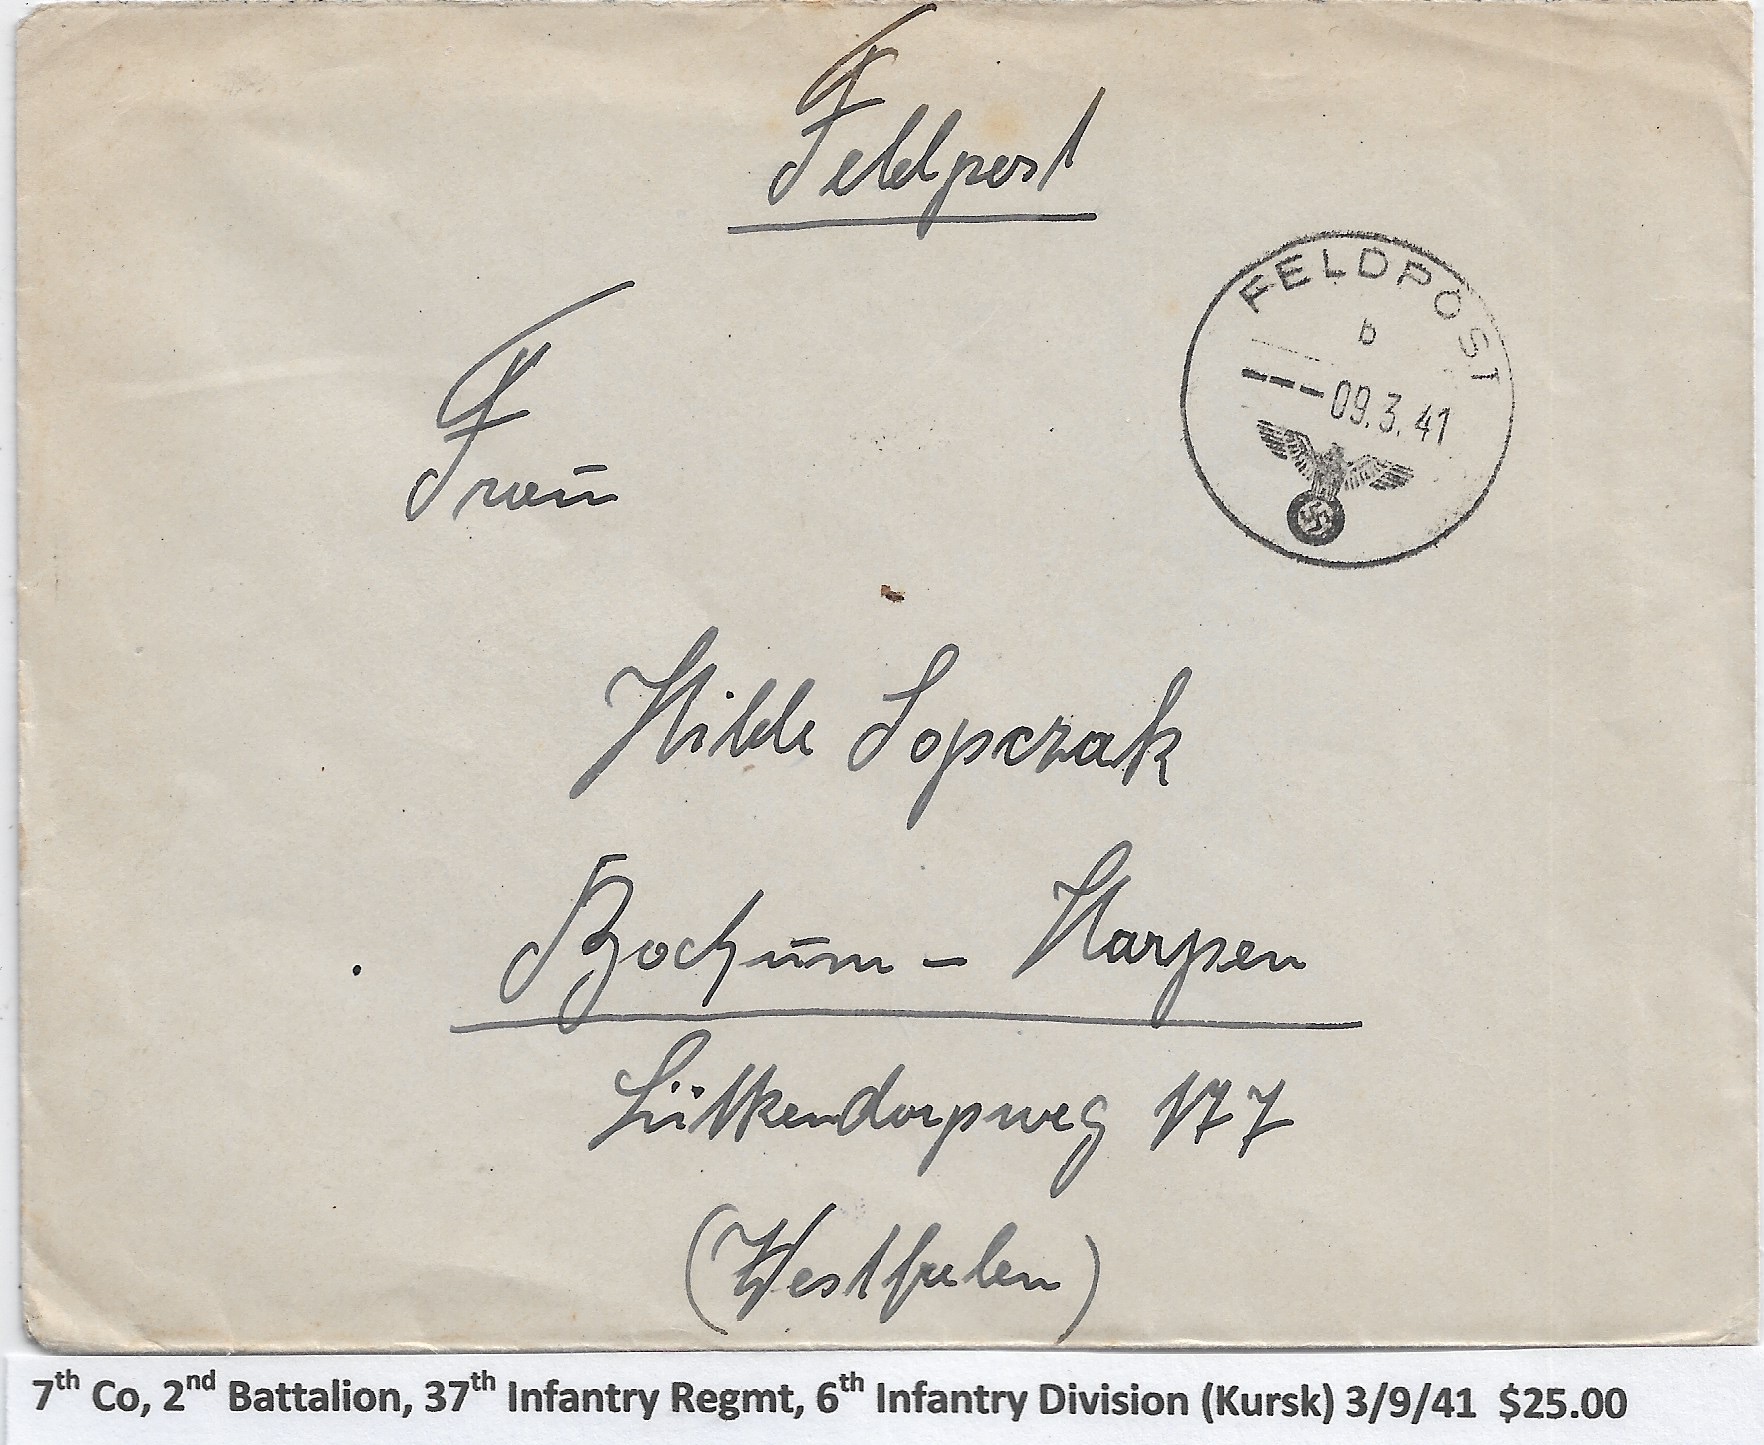 Feldpost
FELDPOST
b
---09.3.41
Frau
Hilde Sopczak
Bochum - Harpen
Lütkendorpweg 177
(Westfalen)
7th Co, 2nd Battalion, 37th Infantry Regmt, 6th Infantry Division (Kursk) 3/9/41 $25.00